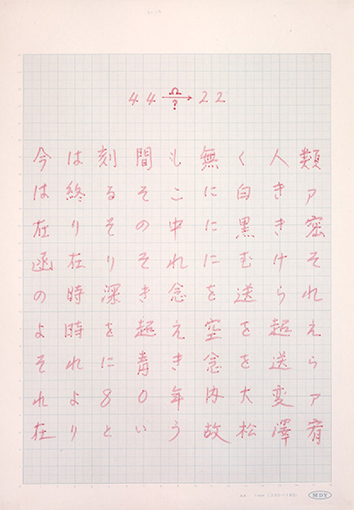 44 Ω→? 22
今は刻間も無く人類
は終るそこに白きァ
在りその中に黒き密
函在りそれにむけそ
の時深き念を送られ
よ時を超え空を超え
それに青き念を送ら
れよ80年内大変ァ
在りという故松澤宥
MDY